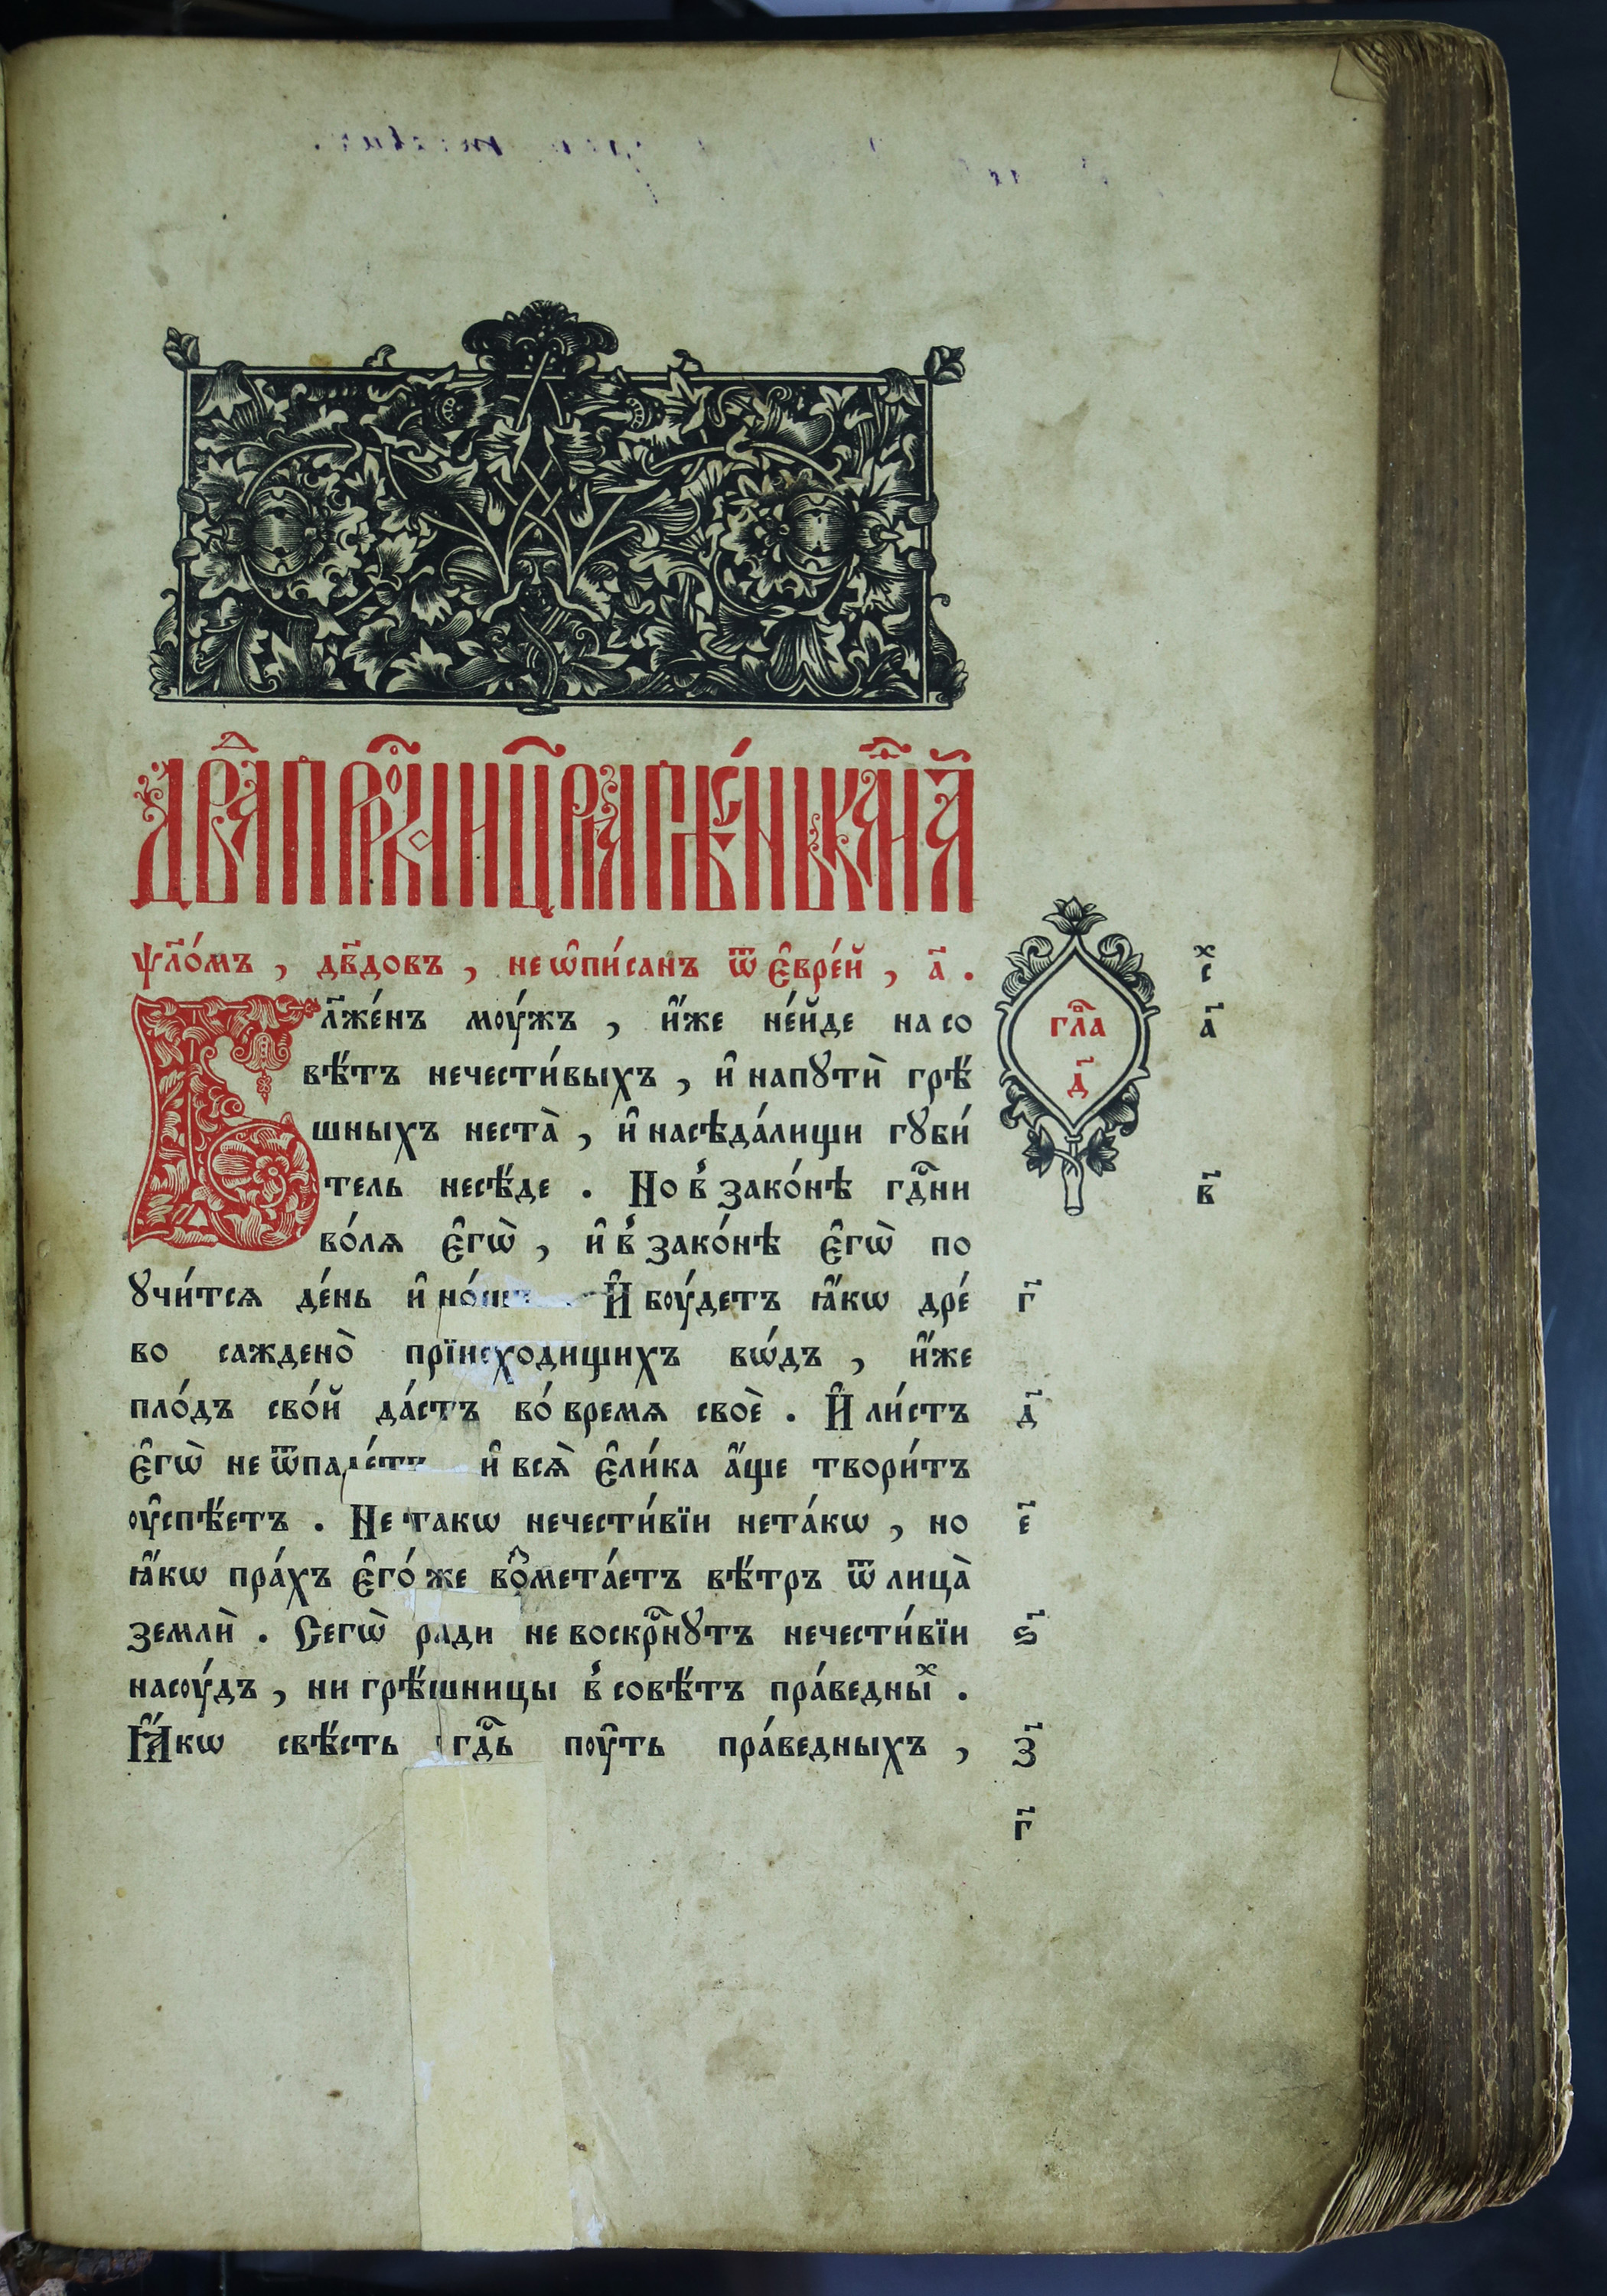 Двⷣа прⷪ҇рка и цр҃ѧ пѣ́снь каѳⷭ҇ма а҃
ѱл҃о́мъ , дв҃довъ , не ѡ҆пи́санъ ѿ є҆вре́й , а҃ .
Бл҃же́нъ моу́жъ , и҆́же не́йде на со
вѣ́тъ нечести́выхъ , и҆ напꙋтѝ грѣ́
шныхъ неста̀ , и҆ насѣда́лищи гꙋби́
тель несѣ́де . Но в̾ зако́нѣ гдⷭ҇ни
во́лѧ є҆гѡ̀ , и҆ в̾ зако́нѣ є҆гѡ̀ по
ꙋчи́тсѧ де́нь и҆ И҆ боу́детъ ꙗ҆́кѡ дре́
во саждено̀ прїисходищихъ вѡ́дъ , и҆́же
пло́дъ сво́й да́стъ во́ времѧ своѐ . И҆ ли́стъ
є҆гѡ̀ не ѿпаде́тъ и҆ всѧ̀ є҆ли́ка а҆́ще твори́тъ
оу҆спѣ́етъ . Не такѡ нечести́вїи нета́кѡ , но
ꙗ҆́кѡ пра́хъ є҆го́ же воⷥмета́етъ вѣ́тръ ѿ лица̀
землѝ . Сегѡ̀ ради не воскрⷭ҇нꙋтъ нечести́вїи
насоу́дъ , ни грѣ́шницы в̾ совѣ́тъ пра́ведныⷯ .
Ꙗ҆́кѡ свѣ́сть гдⷭ҇ь поу҆ть пра́ведныхъ ,
гл҃а
д҃
х
с
а҃
в҃
г҃
д҃
є҃
ѕ҃
з҃
г҃